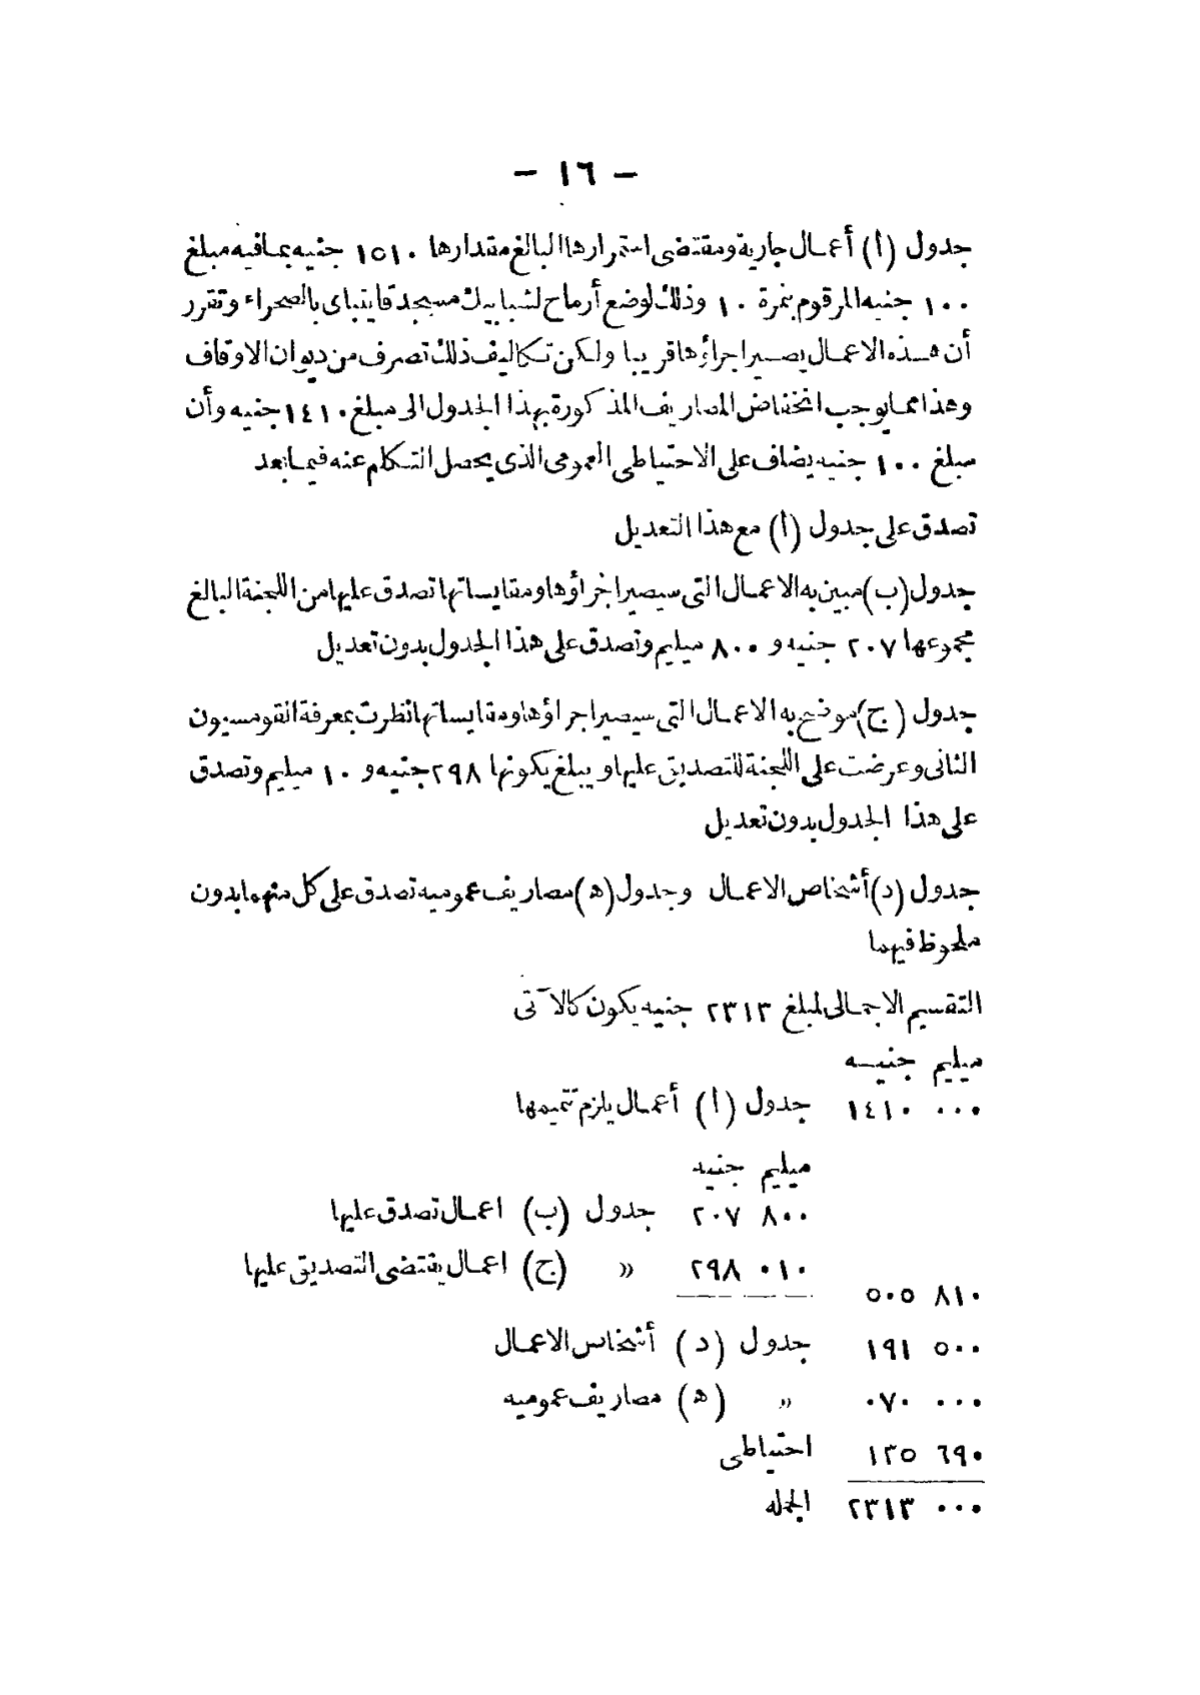 – ١٦ –
جدول (أ) أعمال جارية ومقتضى استمرارها البالغ مقدارها ١٥١٠ جنيه بمافيه مبلغ
١٠٠ جنيه المرقوم بنمرة ١٠ وذلك لوضع أرماح لشبابيك مسجد قايتباى بالصحراء وتقرر
أن هذه الاعمال يصير اجراؤها قريبا ولكن تكاليف ذلك تصرف من ديوان الاوقاف
وهذا مما يوجب انخفاض المصاريف المذكورة بهذا الجدول الى مبلغ ١٤١٠ جنيه وأن
مبلغ ١٠٠ جنيه يضاف على الاحتياطى العمومى الذى يحصل التكلم عنه فيما بعد
تصدق على جدول (أ) مع هذا التعديل
جدول (ب) مبين به الاعمال التى سيصير اجراؤها ومقايساتها تصدق عليها من اللجنة البالغ
مجموعها ٢٠٧ جنيه و ٨٠٠ ميليم وتصدق على هذا الجدول بدون تعديل
جدول (ج) موضح به الاعمال التى سيصير اجراؤها ومقايساتها نظرت بمعرفة القومسيون
الثانى وعرضت على اللجنة للتصديق عليها ويبلغ يكونها ٢٩٨ جنيه و ١٠ ميليم وتصدق
على هذا الجدول بدون تعديل
جدول (د) أشخاص الاعمال وجدول (ه) مصاريف عموميه تصدق على كل منهما بدون
ملحوظ فيهما
التقسيم الاجمالى لمبلغ ٢٣١٣ جنيه يكون كالآتى
ميليم جنيه
٠٠٠ ١٤١٠ جدول (أ) أعمال يلزم تتميمها
ميليم جنيه
٨٠٠ ٢٠٧ جدول (ب) اعمال تصدق عليها
٠١٠ ٢٩٨ » (ج) اعمال يقتضى التصديق عليها
٨١٠ ٥٠٥
٥٠٠ ١٩١ جدول (د) أشخاص الاعمال
٠٠٠ ٠٧٠ » (ه) مصاريف عموميه
٦٩٠ ١٣٥ احتياطى
٠٠٠ ٢٣١٣ الجمله